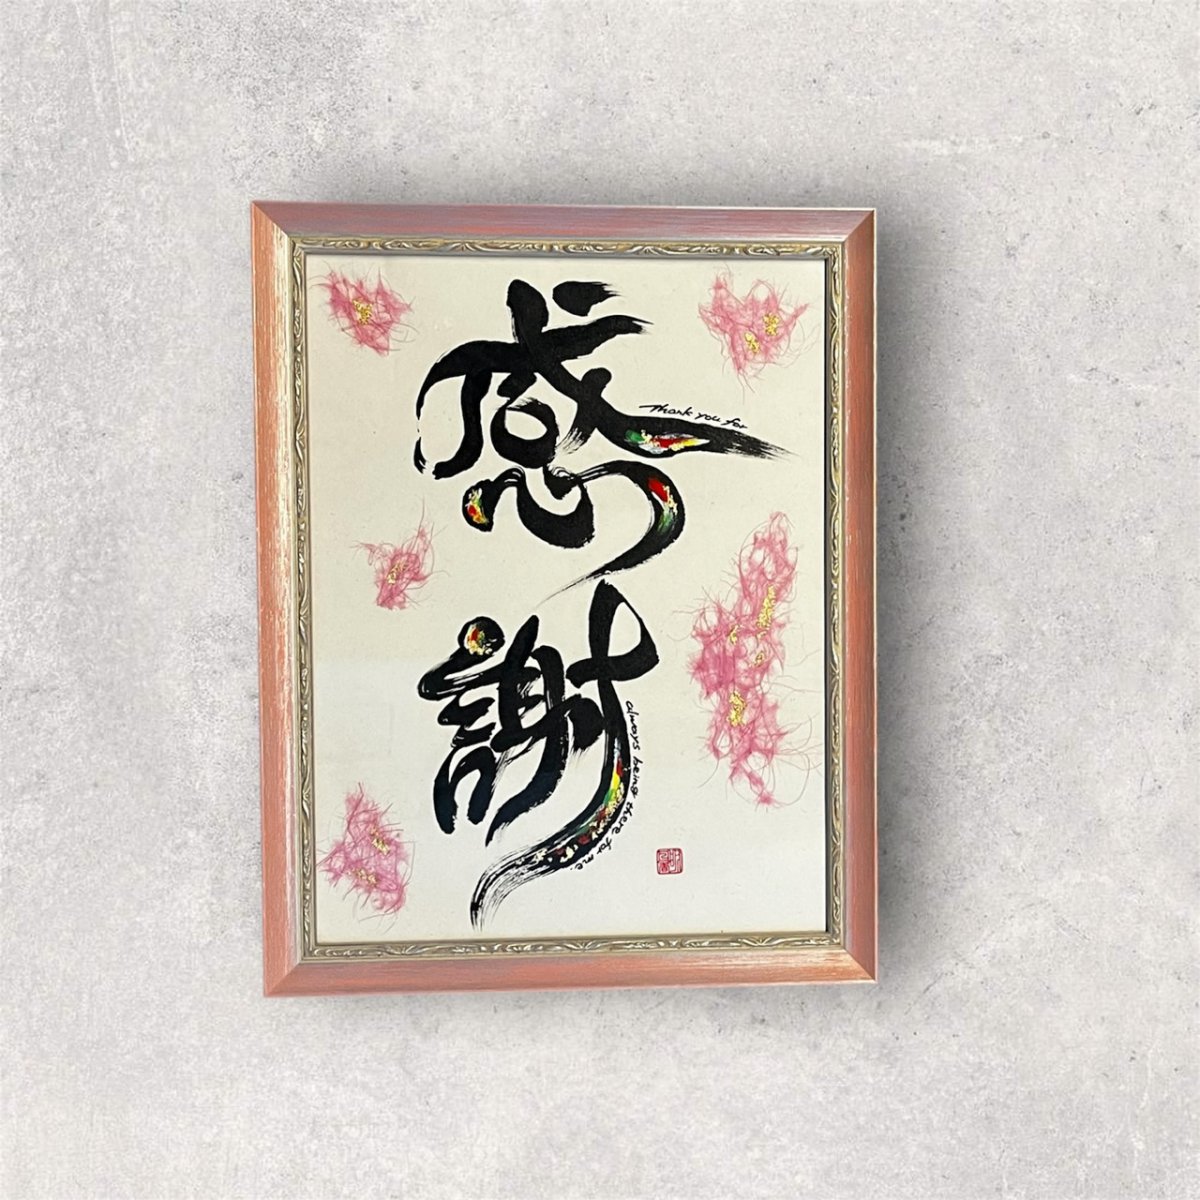 感謝
Thank you for
always being there for me.